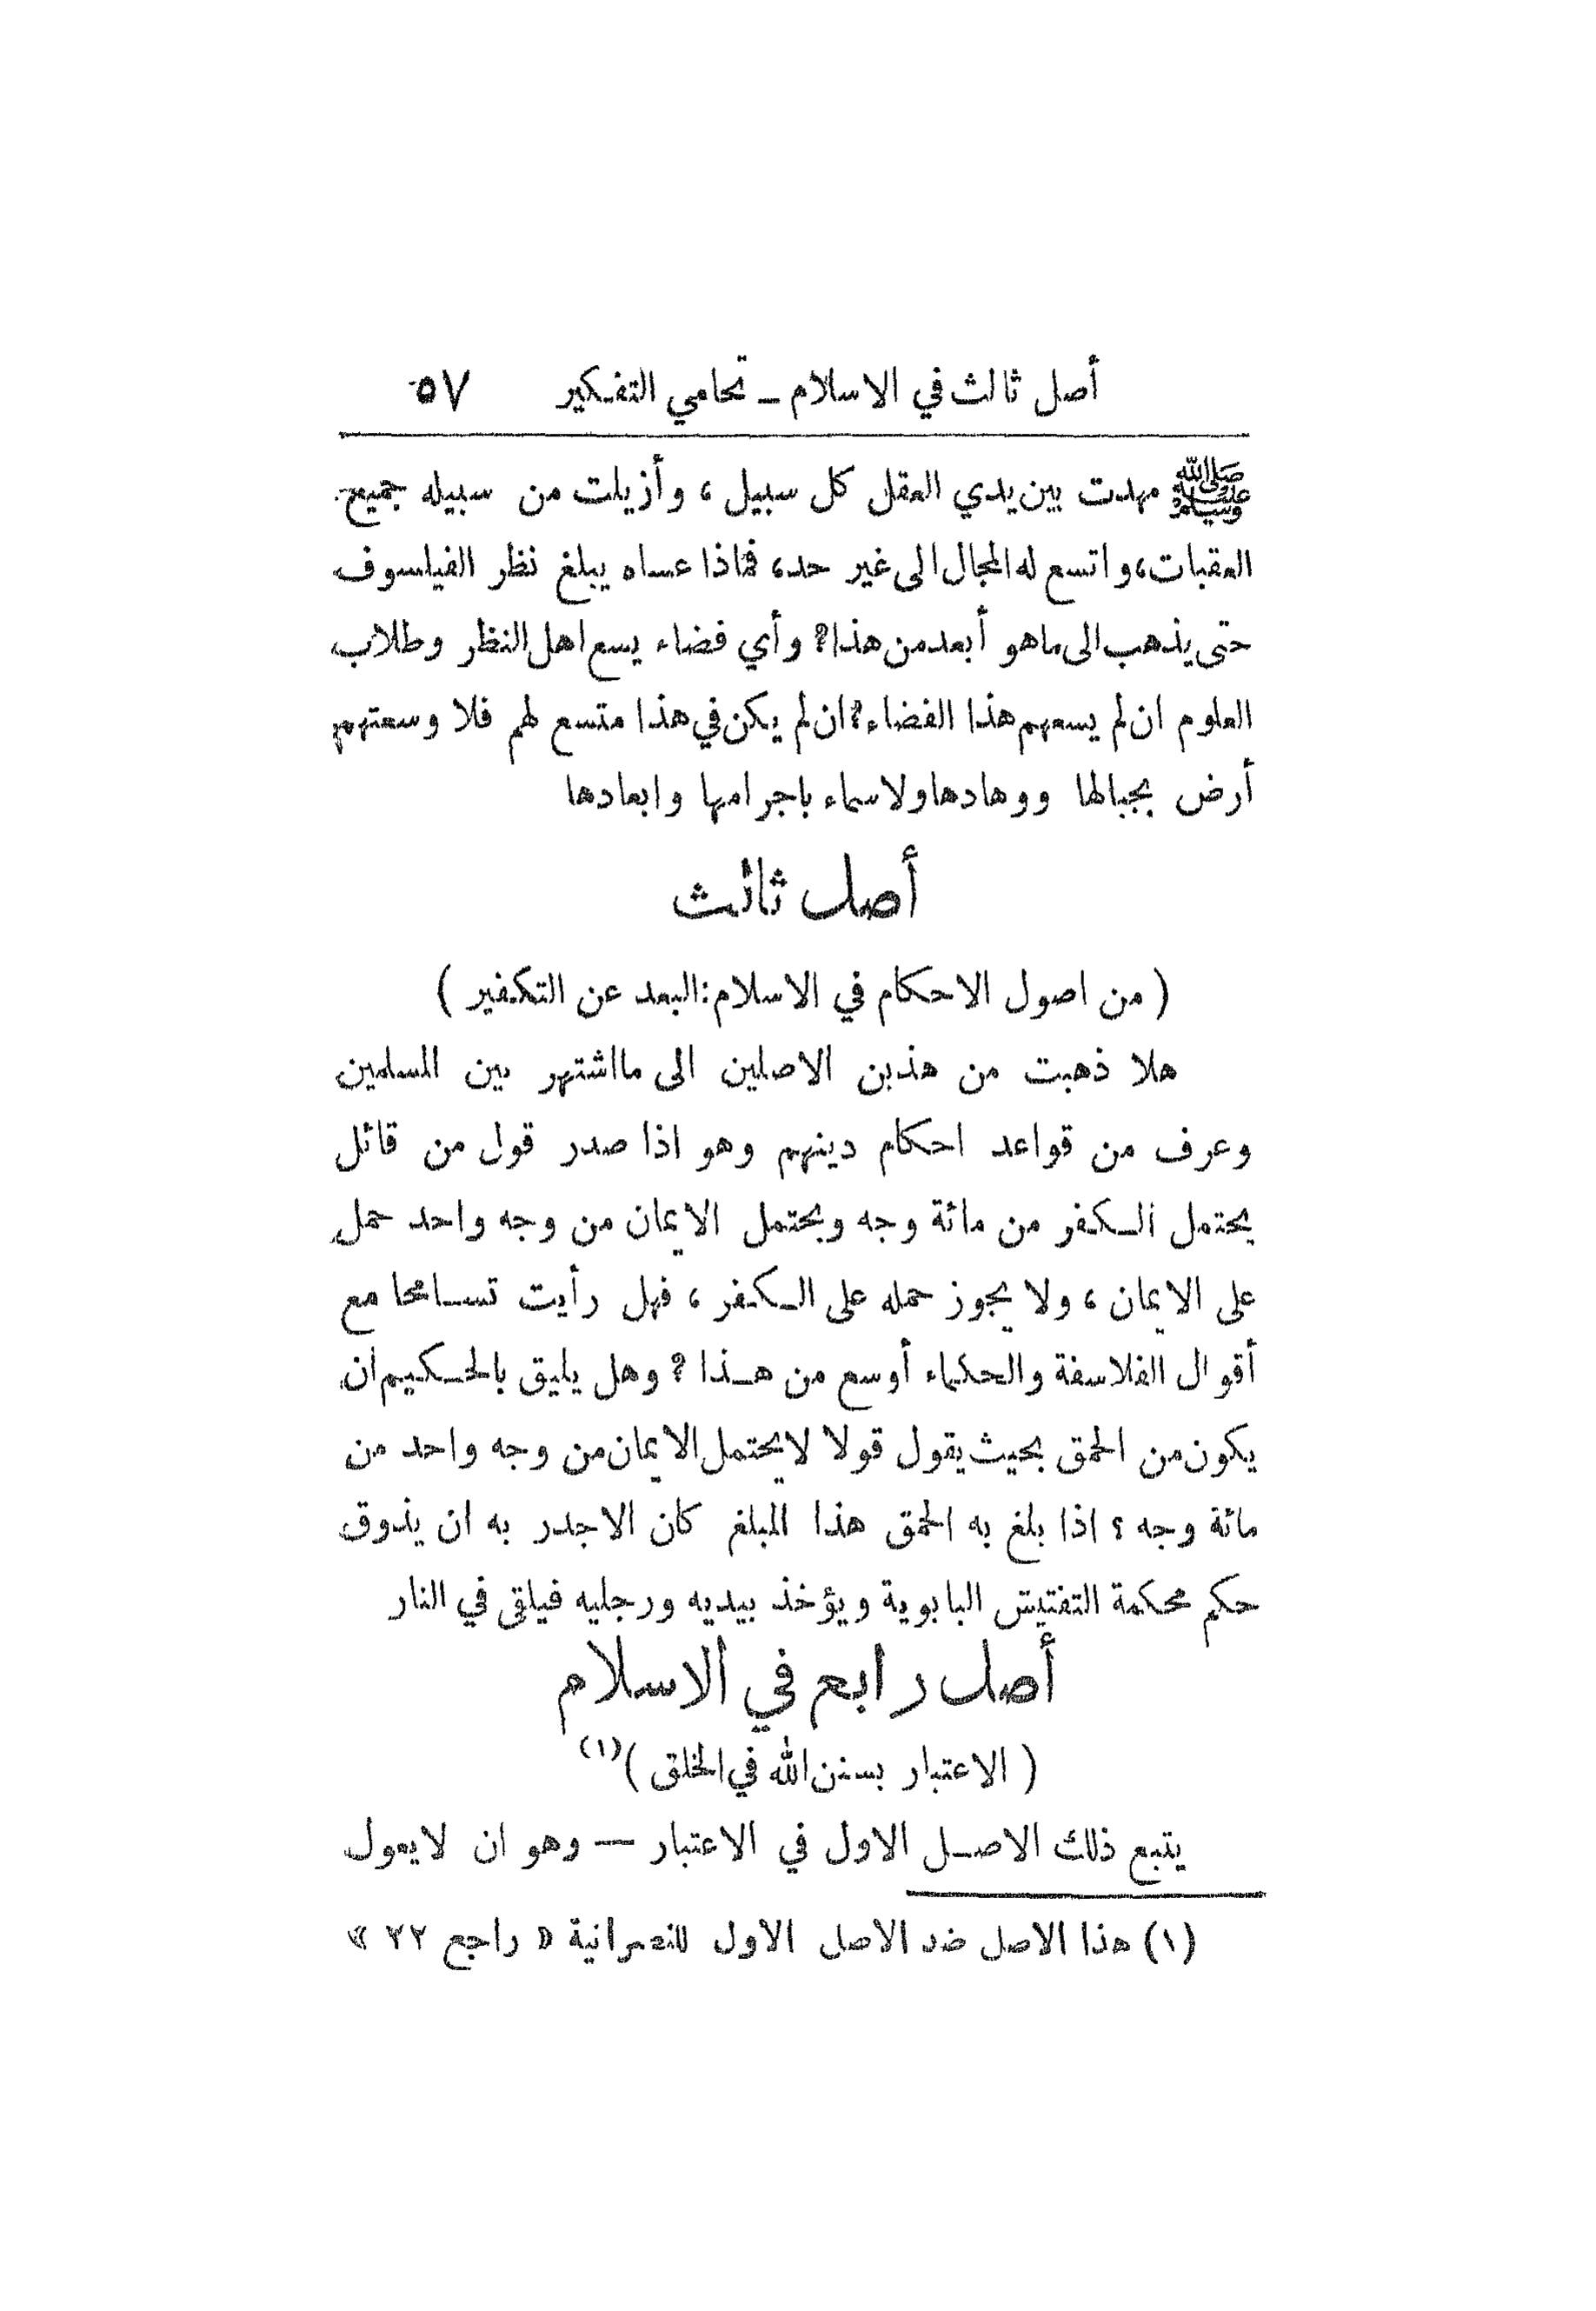 أصل ثالث في الاسلام ـ تحامي التفكير ٥٧
ﷺ مهدت بين يدي العقل كل سبيل ، وأزيلت من سبيله جميع
العقبات، واتسع له المجال الى غير حد، فماذا عساه يبلغ نظر الفيلسوف
حتى يذهب الى ما هو أبعد من هذا؟ وأي فضاء يسع اهل النظر وطلاب
العلوم ان لم يسعهم هذا الفضاء؟ ان لم يكن في هذا متسع لهم فلا وسعتهم
أرض بجبالها ووهادها ولا سماء باجرامها وابعادها
أصل ثالث
( من اصول الاحكام في الاسلام: البعد عن التكفير )
هلا ذهبت من هذين الاصلين الى ما اشتهر بين المسلمين
وعرف من قواعد احكام دينهم وهو اذا صدر قول من قائل
يحتمل الكفر من مائة وجه ويحتمل الايمان من وجه واحد حمل
على الايمان ، ولا يجوز حمله على الكفر ، فهل رأيت تسامحا مع
أقوال الفلاسفة والحكماء أوسع من هذا ؟ وهل يليق بالحكيم ان
يكون من الحمق بحيث يقول قولا لا يحتمل الايمان من وجه واحد من
مائة وجه ؟ اذا بلغ به الحمق هذا المبلغ كان الاجدر به ان يذوق
حكم محكمة التفتيش البابوية ويؤخذ بيديه ورجليه فيلقى في النار
أصل رابع في الاسلام
( الاعتبار بسنن الله في الخلق )(١)
يتبع ذلك الاصل الاول في الاعتبار — وهو ان لا يعول
(١) هذا الاصل ضد الاصل الاول للنصرانية « راجع ٢٢ »